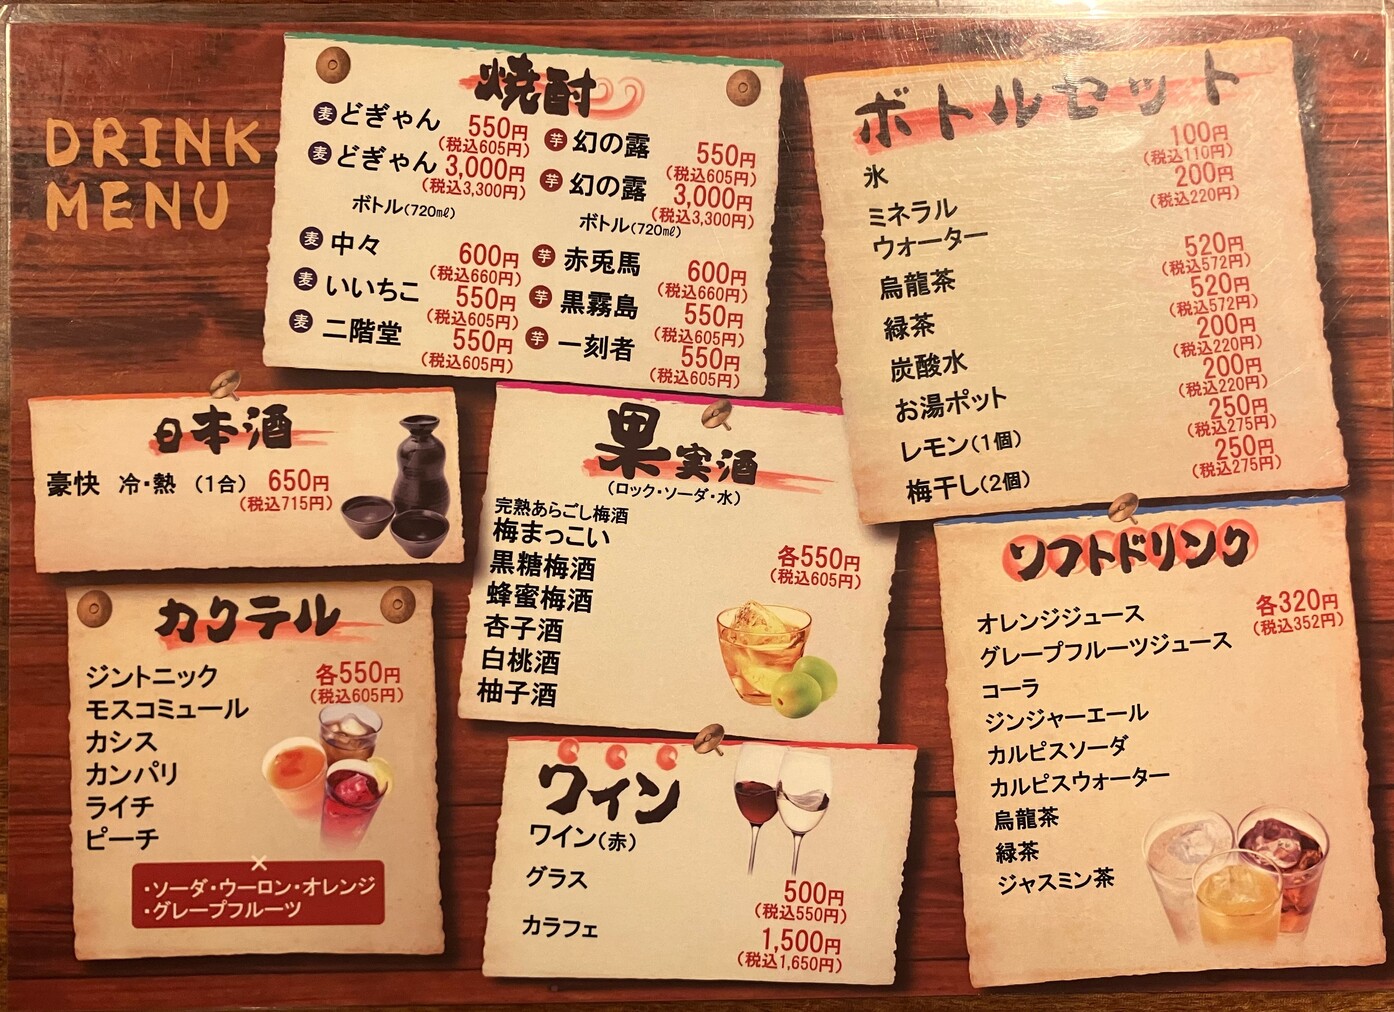 DRINK
MENU
焼酎
麦 どぎゃん 550円
(税込605円)
麦 どぎゃん 3,000円
(税込3,300円)
ボトル(720㎖)
麦 中々 600円
(税込660円)
麦 いいちこ 550円
(税込605円)
麦 二階堂 550円
(税込605円)
芋 幻の露 550円
(税込605円)
芋 幻の露 3,000円
(税込3,300円)
ボトル(720㎖)
芋 赤兎馬 600円
(税込660円)
芋 黒霧島 550円
(税込605円)
芋 一刻者 550円
(税込605円)
ボトルセット
氷 100円
(税込110円)
ミネラル
ウォーター 200円
(税込220円)
烏龍茶 520円
(税込572円)
緑茶 520円
(税込572円)
炭酸水 200円
(税込220円)
お湯ポット 200円
(税込220円)
レモン(1個) 250円
(税込275円)
梅干し(2個) 250円
(税込275円)
日本酒
豪快 冷・熱 (1合) 650円
(税込715円)
果実酒
(ロック・ソーダ・水)
完熟あらごし梅酒
梅まっこい
黒糖梅酒
蜂蜜梅酒
杏子酒
白桃酒
柚子酒
各550円
(税込605円)
カクテル
ジントニック
モスコミュール
カシス
カンパリ
ライチ
ピーチ
各550円
(税込605円)
×
・ソーダ・ウーロン・オレンジ
・グレープフルーツ
ワイン
ワイン(赤)
グラス 500円
(税込550円)
カラフェ 1,500円
(税込1,650円)
ソフトドリンク
オレンジジュース
グレープフルーツジュース
コーラ
ジンジャーエール
カルピスソーダ
カルピスウォーター
烏龍茶
緑茶
ジャスミン茶
各320円
(税込352円)